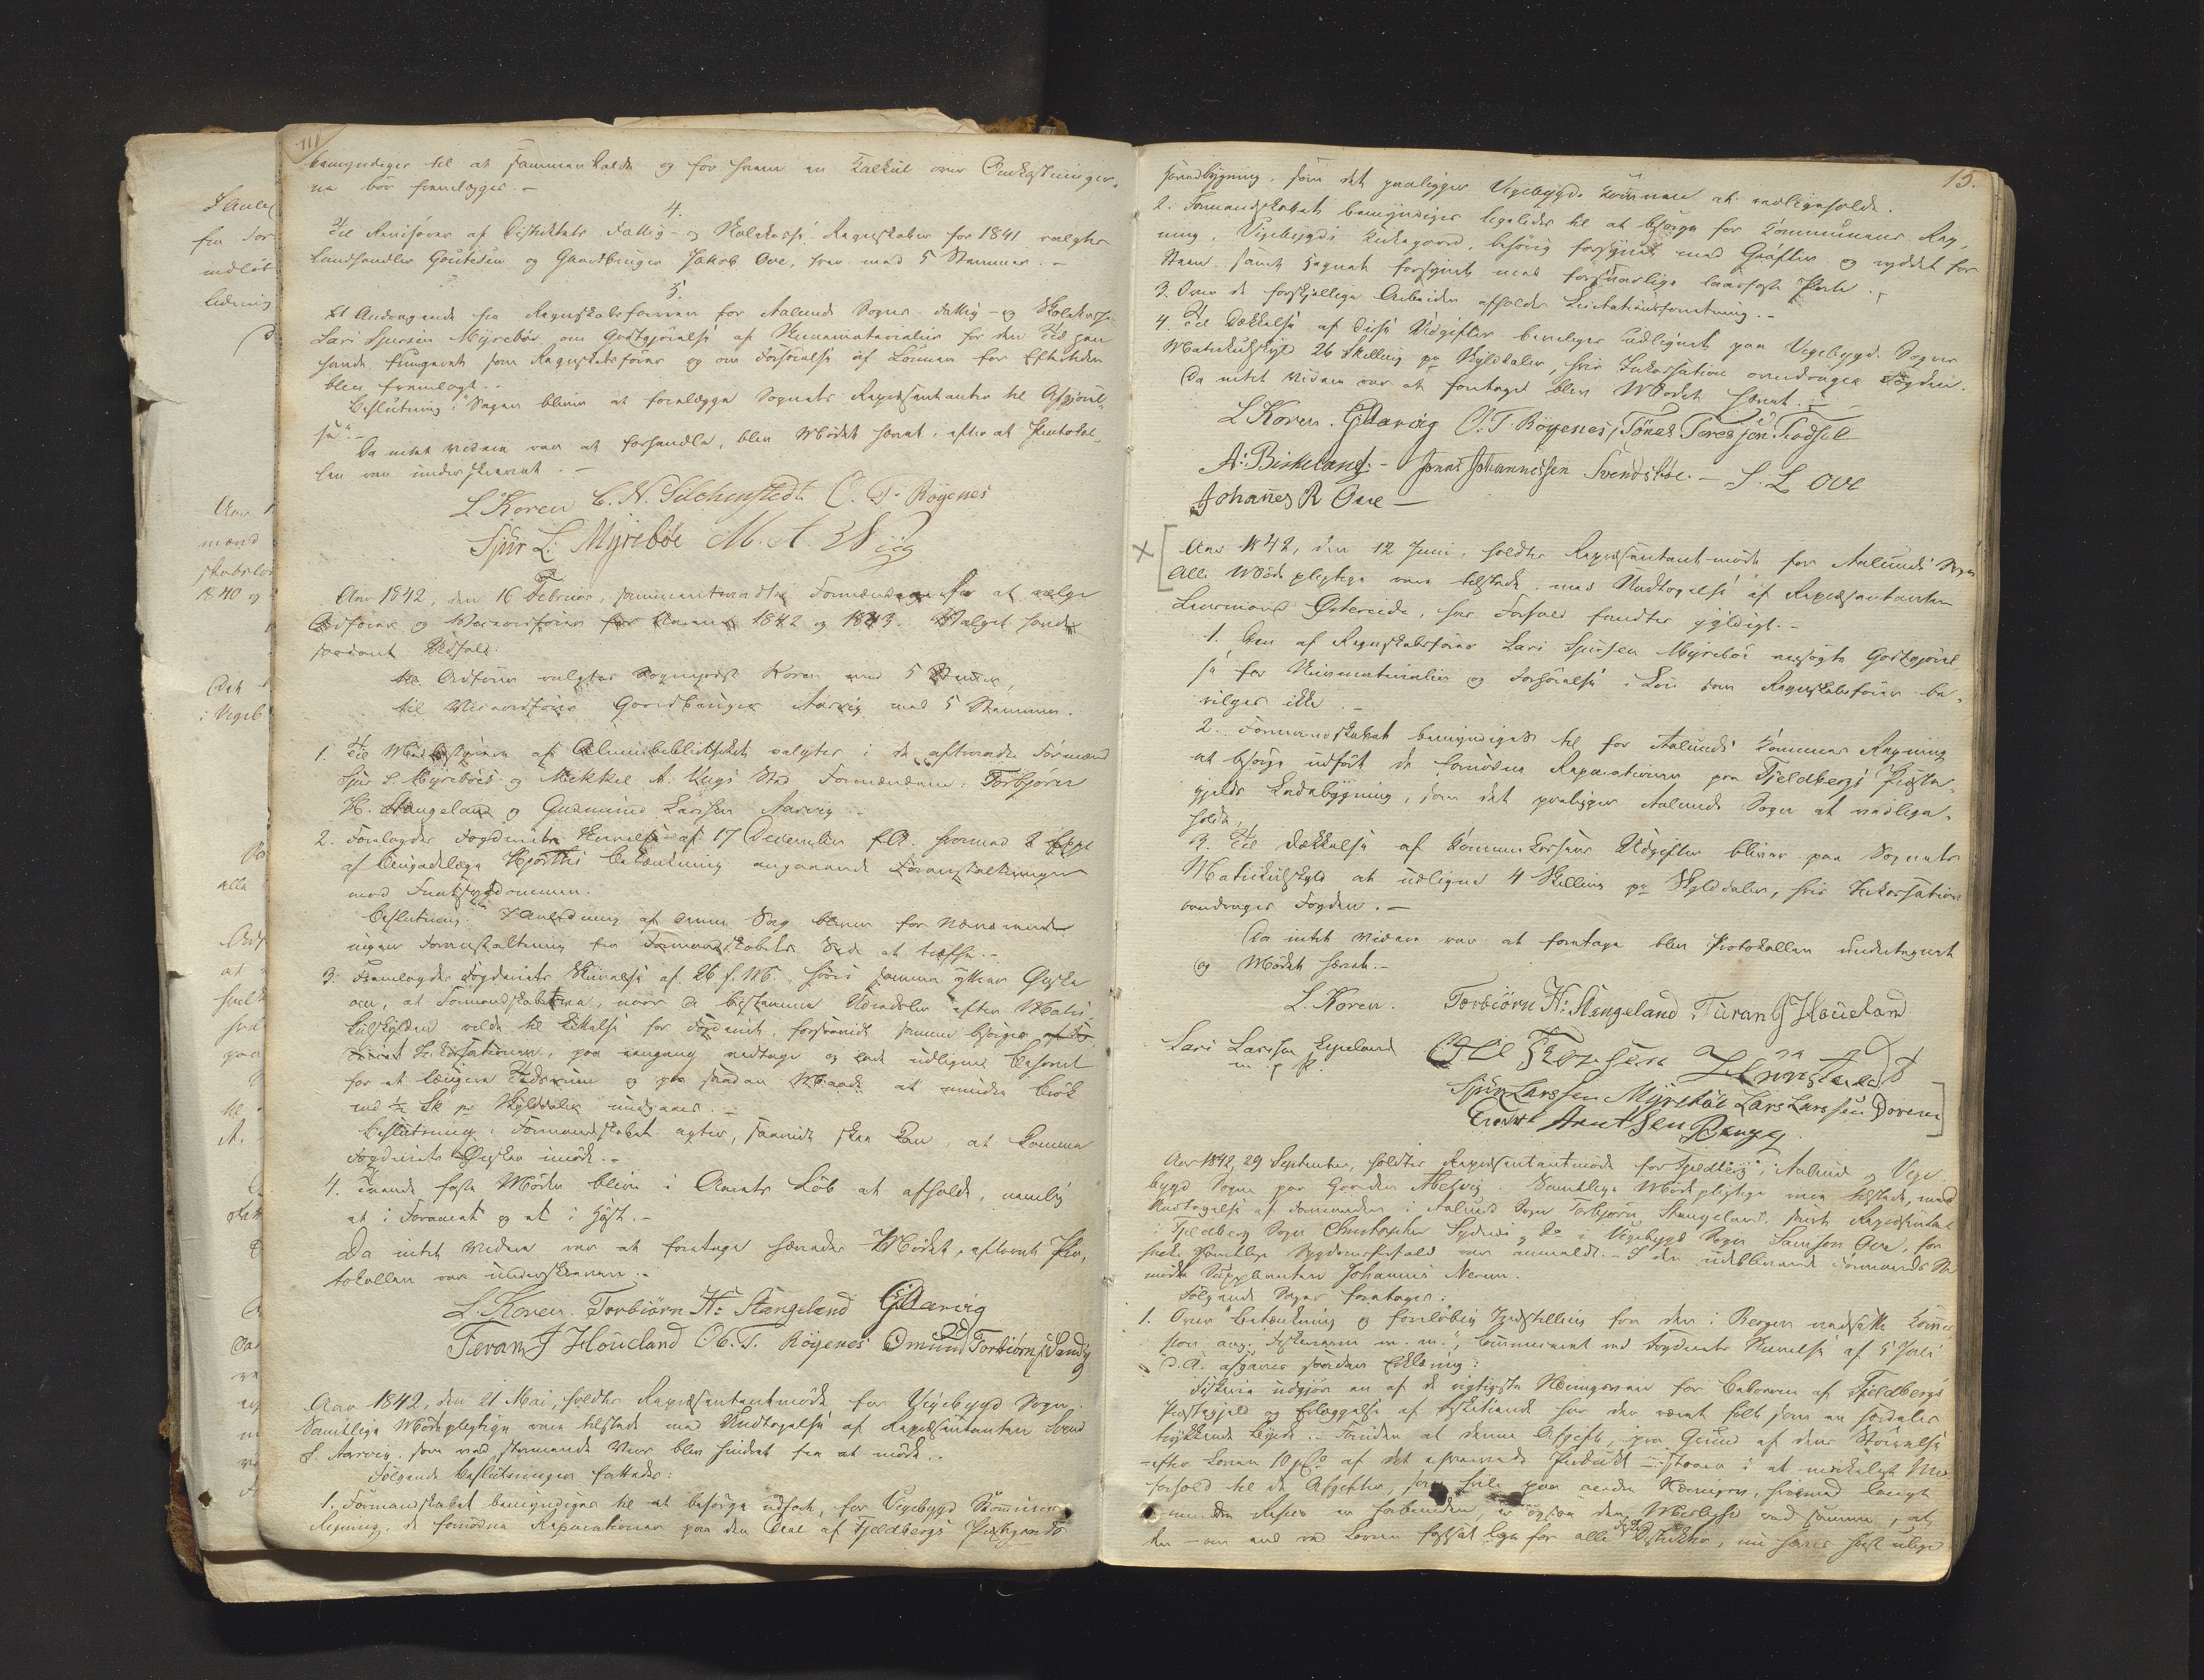 bemyndiges til at sammenkalde og for hvem en Kalkul over Omkostninger-
ne bør fremlægges. -
4.
Til Revisorer af Districtets Fattig- og Skolekasse Regnskaber for 1841 valgtes
Landhandler Goutesen og Gaardbruger Jakob Ove, hver med 5 Stemmer. -
5.
Et Andragende fra Regnskabsføreren for Aalunds Sogns Fattig- og Skolekasse
Lars Sjursen Myrebøe om Godtgjørelse af Skrivematerialier for den Tid han
havde fungeret som Regnskabsfører og om Forhøielse af Lønnen for Eftertiden
blev fremlagt. -
Beslutning: "Sagen bliver at forelægge Sognets Repræsentanter til Afgjørel-
se." -
Da intet videre var at forhandle, blev Mødet hævet, efter at Protokol-
len var underskrevet. -
L Koren C. N. Silchenstedt O. T. Røyenes
Sjur L: Myrebøe M. A. Wiig
Aar 1842, den 16 Februar, sammentraadte Formændene for at vælge
Ordfører og Viceordfører for Aarene 1842 og 1843. Valget havde
saadant Udfald:
til Ordfører valgtes Sognepræst Koren med 5 Stemmer,
til Viceordfører Gaardbruger Aarvig med 5 Stemmer.
1. Til Medbestyrere af Almuebibliotheket valgtes i de aftraadte Formænd
Sjur L Myrebøes og Mikkel A. Viigs Sted Formændene: Torbjørn
H. Stangeland og Gudmund Larsen Aarvig. -
2. Foredragdes Fogderiets Skrivelse af 17 December f.A. hvormed 2 Expl
af Brigadelæge Hjorths Betænkning angaaende Foranstaltninger
mod
Beslutning: "I Anledning af denne Sag bliver for Nærværende
ingen Foranstaltning fra Formandskabets Side at træffe. -
3. Fremlagdes Fogderiets Skrivelse af 26 f. M., hvori samme yttrer Ønske
om, at Formandskaberne, naar de bestemme Udredsler efter Matri-
kulskylden
Inkassationen, paa eengang vedtage og lade udligne Beløbet
for et længere Tidsrum og paa saadan Maade at mindre Brøk
end ½ Sk pr Skylddaler undgaaes. -
Beslutning: Formandskabet agter, saavidt skee kan, at komme
Fogderiets Ønske imøde. -
4. Tvende faste Møder blive i Aarets Løb at afholde, nemlig
et i Foraaret og et i Høst. -
Da intet videre var at foretage hævedes Mødet, efterat Pro-
tokollen var underskreven. -
L. Koren. Torbiörn H: Stangeland GLAarvig
Tieran J Houeland Ob. T. Røyenes Omund Torbiörnsen Sandvig
Aar 1842, den 21 Mai, holdtes Repræsentantmøde for Vigebygd Sogn.
Samtlige Mødepligtige vare tilstede med Undtagelse af Repræsentanten Svend
S. Aarvig, som ved stormende Veir blev hindret fra at møde. -
Følgende Beslutninger fattedes:
1. Formandskabet bemyndiges til at besørge udført, for Vigebygd Kommunes
Regning, de fornødne Reparationer paa den Deel af Fjeldbergs Præstegaards
15.
Jordbygning, som det paaligger Vigebygds Kommune at vedligeholde.
2. Formandskabet bemyndiges ligeledes til at besørge for Kommunens Reg-
ning, Vigebygds Kirkegaard, behørig forsynet med Grøfter og ryddet for
Steen, samt Hegnet forsynet med forsvarlige laasfaste Porte. -
3. Over de forskjellige Arbeider afholdes Licitationsforretning. -
4. Til Dækkelse af disse Udgifter bevilges udlignet paa Vigebygd Sogns
Matrikulskyld 26 Skilling pr Skylddaler, hvis Inkassation overdrages Fogden.
Da intet videre var at foretage blev Mødet hævet. -
L Koren. GLAarvig O. T. Røyenes, Tønes Toresen Tindsel
A: Birkeland: - Jonas Johannessen Svendsbøe. - S. L Ove
Johanes R Ove -
Aar 1842, den 12 Juni, holdtes Repræsentantmøde for Aalunds Sogn
Alle Mødepligtige vare tilstede, med Undtagelse af Repræsentanten
Østereide, hvis Forfald fandtes gyldigt. -
1. Den af Regnskabsfører Lars Sjursen Myrebøe ansøgte Godtgjørel-
se for Skrivematerialier og Forhøielse i Løn som Regnskabsfører be-
vilges ikke. -
2. Formandskabet bemyndiges til for Aalunds Kommunes Regning
at besørge udført de fornødne Reparationer paa Fjeldbergs Præste-
gjelds Ladebygning, som det paaligger Aalunds Sogn at vedlige-
holde.
3. Til Dækkelse af Kommunekassens Udgifter bliver paa Sognets
Matrikulskyld at udligne 4 Skilling pr Skylddaler, hvis Inkassation
overdrages Fogden. -
Da intet videre var at foretage blev Protokollen undertegnet
og Mødet hævet. -
L. Koren. Torbiörn H: Stangeland Tieran J Houeland
Lars Larsen Espeland
m p P.
Sjur Larssen Myrebøe Lars Larssen Doven
Arentsen Berge.
Aar 1842, 29 September, holdtes Repræsentantmøde for Fjeldbergs, Aalunds og Vige-
bygd Sogne paa Gaarden Ølsvig. Samtlige Mødepligtige vare tilstede, med
Undtagelse af Formanden i Aalunds Sogn Torbjørn Stangeland, samt Repræsentant
i Fjeldberg Sogn Christopher Sydnes og Do i Vigebygd Sogn Samson Ove, for
hvilke samtlige Sygdomsforfald var anmeldt. - I den udeblivende Formands Sted
mødte Supplenten Johannes Nerem.
Følgende Sager foretoges:
1. Over "Betænkning og foreløbig Indstilling fra den i Bergen nedsatte Kommis-
sion ang. Fiskerierne m. m.", kommuniceret ved Fogderiets Skrivelse af 5 Juli
d. A. afgaves saadan Erklæring:
Fiskerie udgjør en af de vigtigste Næringsveie for Beboerne af Fjeldbergs
Præstegjeld og Erlæggelse af Fisketiende har der været følt som en særdeles
trykkende Byrde. - Foruden at denne Afgift, paa Grund af dens Størrelse
- efter Loven 10 pCt af det erhvervede Produkt - staaer i et mærkeligt Mis-
forhold til de Afgifter, som hvile paa andre Næringer, hvormed langt
mindre Risico er forbunden, er ogsaa den Misligh ved samme, at
den - om end ved Loven fastsat liges for alle Distrikter, nu hæves høist ulige